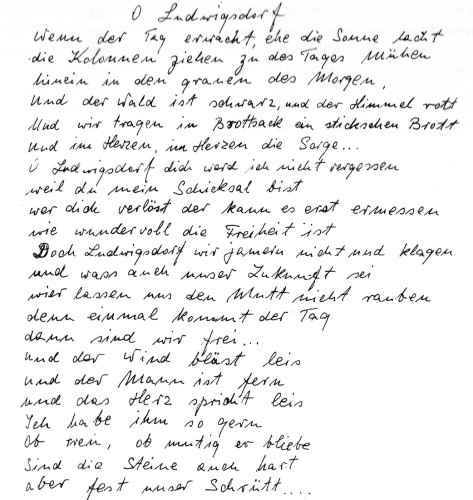 O Ludwigsdorf
Wenn der Tag erwacht, ehe die Sonne lacht
die Kolonnen ziehen zu des Tages Mühen
hinein in den grauen des Morgen,
Und der Wald ist schwarz, und der Himmel rott
Und wir tragen in Brottsack ein stückschen Brott
und im Herzen, im Herzen die Sorge...
O Ludwigsdorf dich werd ich nicht vergessen
weil du mein Schicksal bist
wer dich verlöst der kann es erst ermessen
wie wundervoll die Freiheit ist
Doch Ludwigsdorf wir jamern nicht und klagen
und wass auch unser Zukunft sei
wier lassen uns den Mutt nicht rauben
denn einmal kommt der Tag
dann sind wir frei...
und der Wind bläst leis
und der Mann ist fern
und das Herz spricht leis
Ich habe ihm so gern
Ob rein, ob mutig er bliebe
Sind die Steine auch hart
aber fest unser Schrütt....